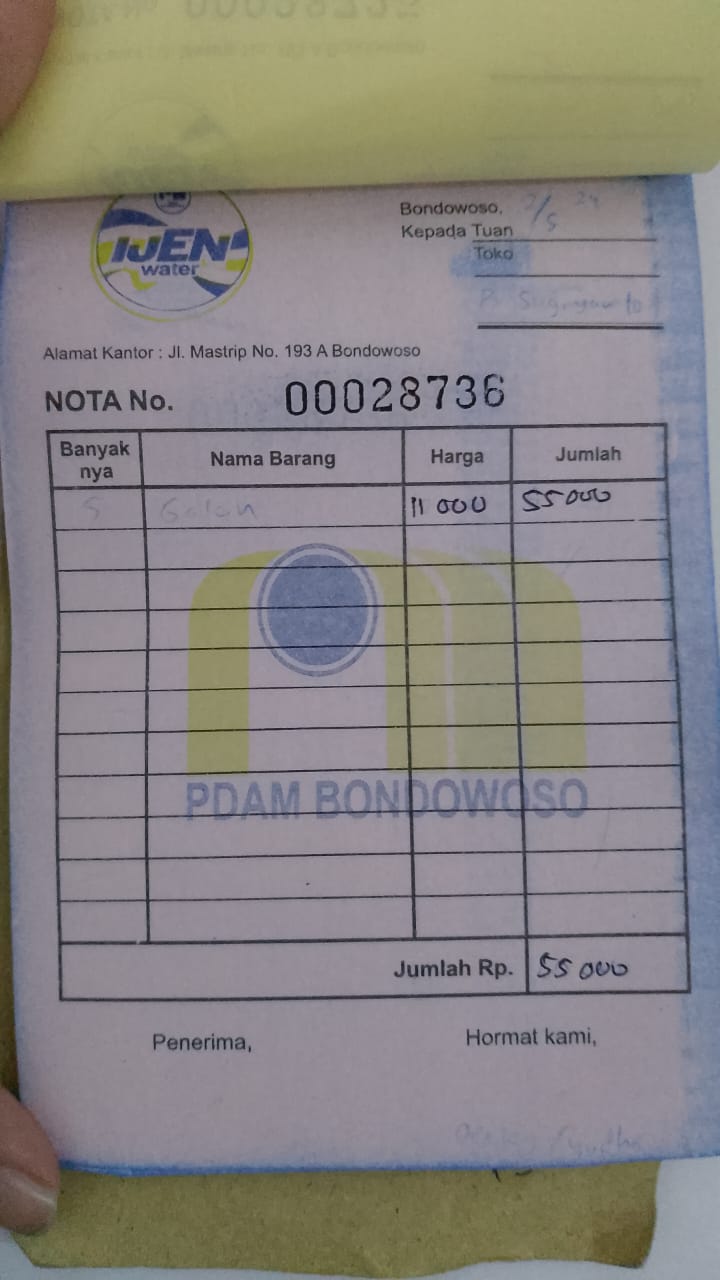 IJEN
water
Bondowoso, 2/5 24
Kepada Tuan
Toko
Alamat Kantor : Jl. Mastrip No. 193 A Bondowoso
NOTA No. 00028736
Banyak nya Nama Barang Harga Jumlah
5 Galon 11 000 55 000
PDAM BONDOWOSO
Jumlah Rp. 55 000
Penerima, Hormat kami,